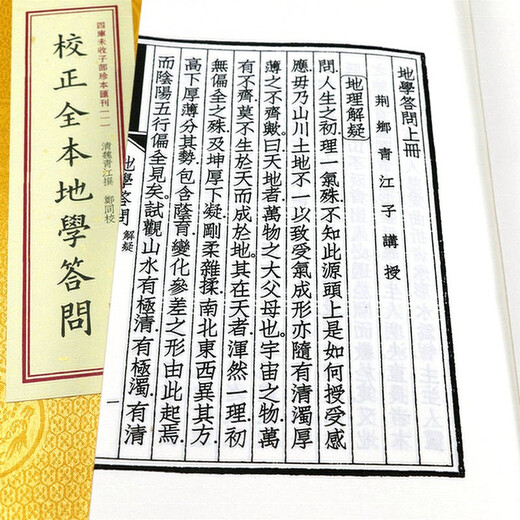 四庫未收子部珍本匯刊(一)
校正全本地學答問
清魏青江撰 鄭同校
地學答問上冊
荆鄉青江子講授
地理解疑
問.人生之初.理一氣殊.不知此源頭上是如何授受感
應.毋乃山川土地不一.以致受氣成形.亦隨有清濁厚
薄之不齊歟.曰.天地者.萬物之大父母也.宇宙之物.萬
有不齊.莫不生於天而成於地.其在天者.渾然一理.初
無偏全之殊.及坤厚下凝.剛柔雜揉.南北東西異其方.
高下厚薄分其勢.包含蔭育.變化參差之形.由此起焉.
而陰陽五行偏全見矣.試觀山水.有極清.有極濁.有清
地學答問
解疑
一